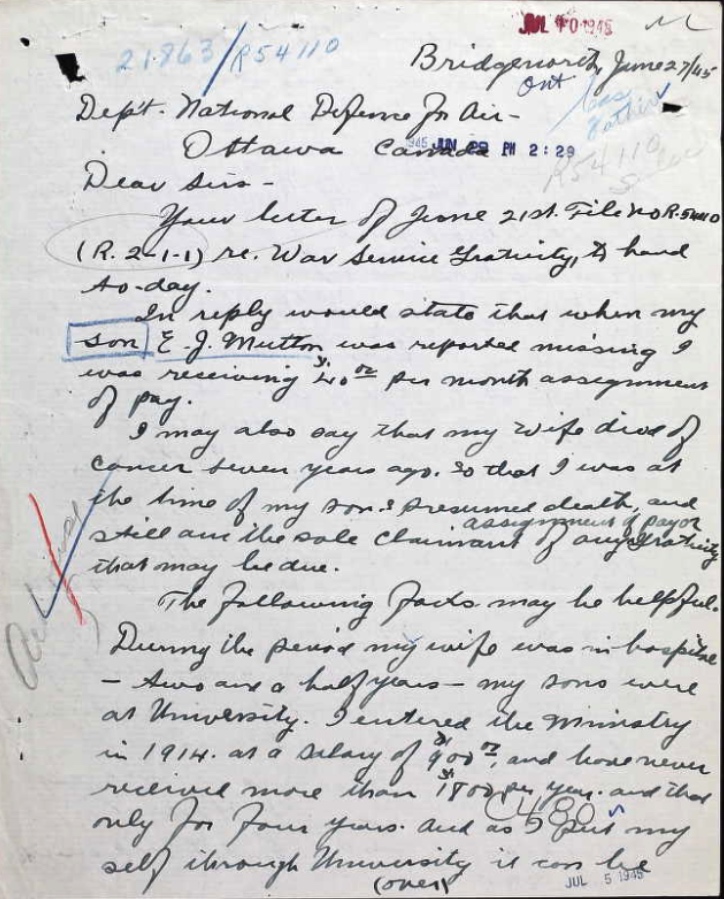 JUL 10 1945
21-863/R54110
Bridgenorth, June 27/45
Ont
Dep't. National Defense for Air -
Ottawa Canada
1945 JUN 29 PM 2:29
R54110
Dear Sirs -
Your letter of June 21st. File no R.54110
(R. 2-1-1) re. War Service Gratuity, to hand
to-day.
In reply would state that when my
son E. J. Mutton was reported missing I
was receiving $40 00 per month assignment
of pay.
I may also say that my wife died of
cancer seven years ago. So that I was at
the time of my son's presumed death, and
assignment of pay or
still am the sole claimant of any gratuity
that may be due.
The following facts may be helpful.
During the period my wife was in hospital
- two and a half years - my sons were
at University. I entered the ministry
in 1914. at a salary of $900 00, and have never
received more than $1800 per year. and that
only for four years. And as I put my
self through University it can be
(over)
JUL 5 1945